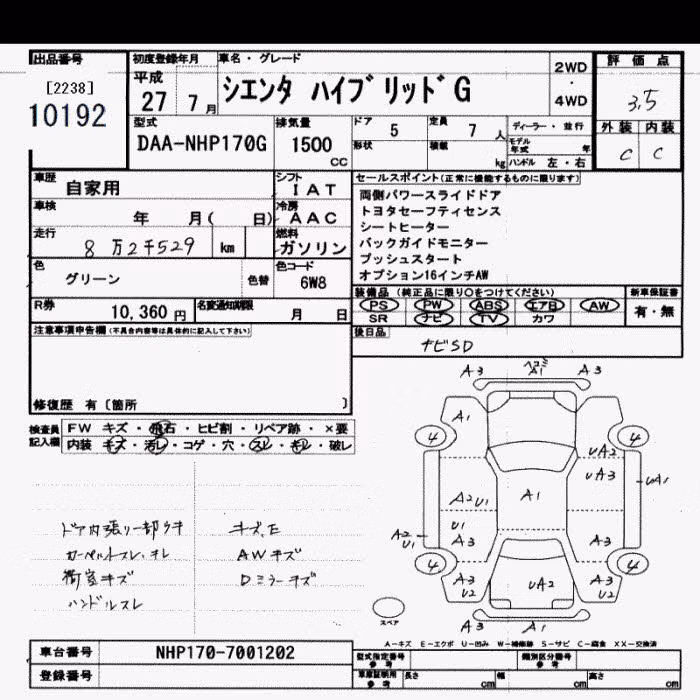 出品番号
[2238]
10192
初度登録年月
平成
27 7 月
車名・グレード
シエンタ ハイブリッドG
2WD
・
4WD
評価点
3.5
外装 内装
C C
型式
DAA-NHP170G
排気量
1500
CC
ドア 5
定員 7 人
形状
積載 kg
ディーラー・並行
モデル年式 年
ハンドル 左・右
車歴 自家用
シフト IAT
車検 年 月( 日)
冷房 AAC
走行 8万2千529 km
燃料 ガソリン
色 グリーン 色替
色コード 6W8
R券 10,360 円
名変通知期限 月 日
セールスポイント(正常に機能するものに限ります)
両側パワースライドドア
トヨタセーフティセンス
シートヒーター
バックガイドモニター
プッシュスタート
オプション16インチAW
装備品(純正品に限り○をつけてください)
PS PW ABS エアB AW
SR ナビ TV カワ
新車保証書
有・無
後日品
ナビSD
注意事項申告欄(不具合内容等は具体的に記入して下さい)
修復歴 有〔箇所 〕
検査員記入欄
FW キズ・飛石・ヒビ割・リペア跡・×要
内装 キズ・汚レ・コゲ・穴・スレ・キレ・破レ
ドア内張リ一部ウキ
カーペットスレ、キレ
荷室キズ
ハンドルスレ
AWキズ
Dミラーキズ
A3 ヘコミ A1 A3
A1
4 4
UA2
UA3
UA1
A2 U1
A1
A2 U1
U1
A3 A3
4 4
A3 U2
UA2
A3 U2
A3 A1
スペア
A-キズ E-エクボ U-凹み W-補修跡 S-サビ C-腐食 XX-交換済
車台番号 NHP170-7001202
登録番号
型式指定番号 参考
類別区分番号 参考
車庫証明用 参考
長さ cm
幅 cm
高さ cm